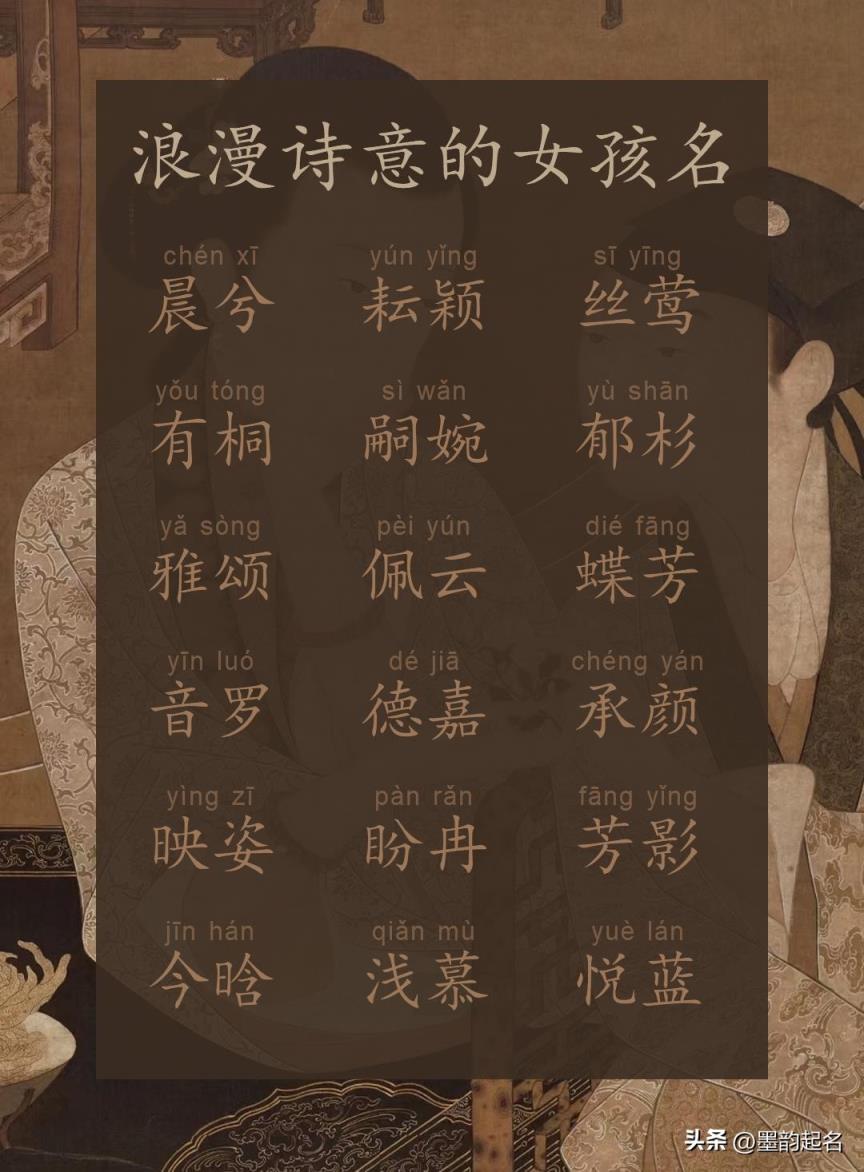 浪漫诗意的女孩名
chén xī yún yǐng sī yīng
晨兮 耘颖 丝莺
yǒu tóng sì wǎn yù shān
有桐 嗣婉 郁杉
yǎ sòng pèi yún dié fāng
雅颂 佩云 蝶芳
yīn luó dé jiā chéng yán
音罗 德嘉 承颜
yìng zī pàn rǎn fāng yǐng
映姿 盼冉 芳影
jīn hán qiǎn mù yuè lán
今晗 浅慕 悦蓝
头条 @墨韵起名